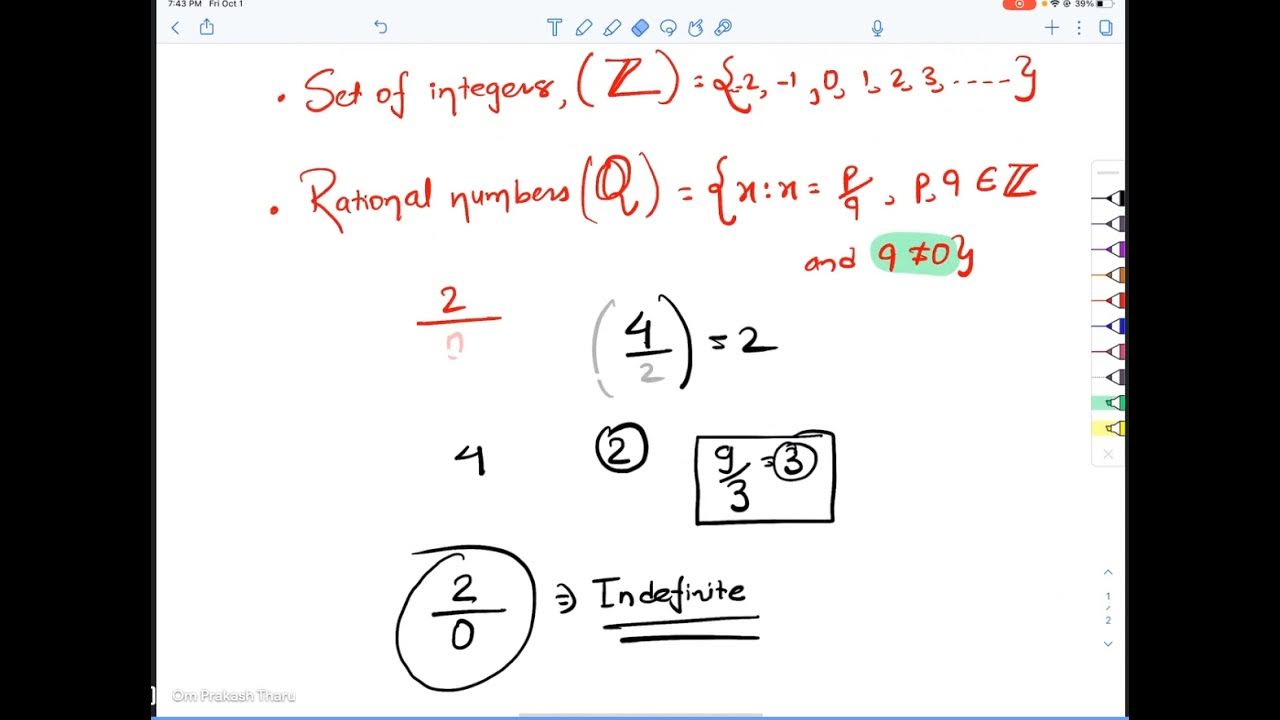 7:43 PM Fri Oct 1
39%
• Set of integers, (ℤ) = {-2, -1, 0, 1, 2, 3, -----}
• Rational numbers (ℚ) = {x : x = p/q, p, q ∈ ℤ
and q ≠ 0}
2/0
(4/2) = 2
4
2
9/3 = 3
2/0 ⇒ Indefinite
1/2
Om Prakash Tharu